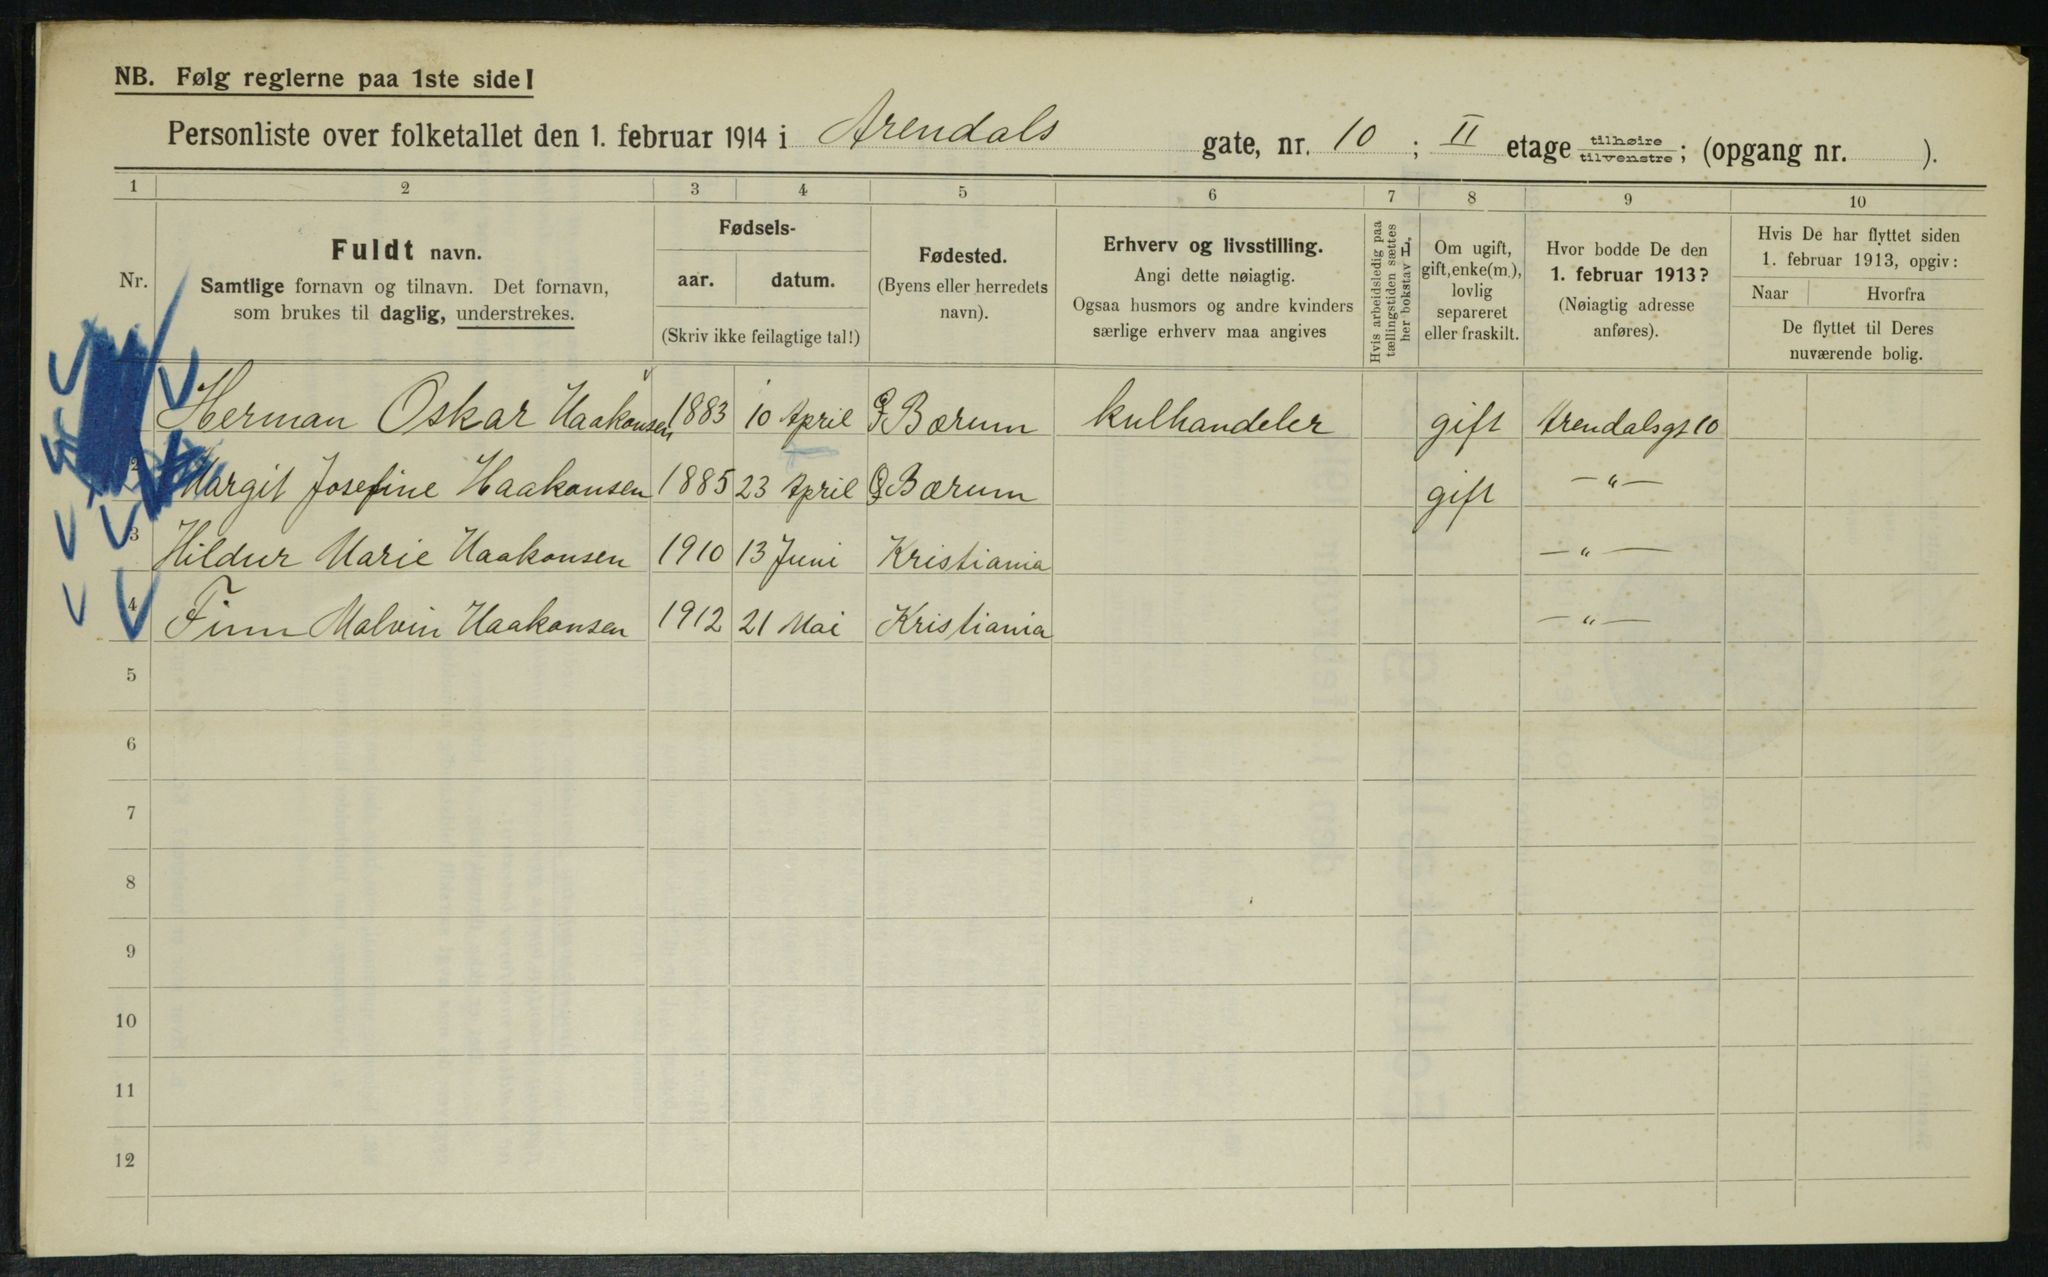 NB. Følg reglerne paa 1ste side!
Personliste over folketallet den 1. februar 1914 i Arendals gate, nr. 10; II etage tilhøire/tilvenstre; (opgang nr. ).
1 2 3 4 5 6 7 8 9 10
Nr.
Fuldt navn.
Samtlige fornavn og tilnavn. Det fornavn,
som brukes til daglig, understrekes.
Fødsels-
aar. datum.
(Skriv ikke feilagtige tal!)
Fødested.
(Byens eller herredets
navn).
Erhverv og livsstilling.
Angi dette nøiagtig.
Ogsaa husmors og andre kvinders
særlige erhverv maa angives
Hvis arbeidsledig paa
tællingstiden sættes
her bokstav H.
Om ugift,
gift, enke(m.),
lovlig
separeret
eller fraskilt.
Hvor bodde De den
1. februar 1913?
(Nøiagtig adresse
anføres).
Hvis De har flyttet siden
1. februar 1913, opgiv:
Naar Hvorfra
De flyttet til Deres
nuværende bolig.
Herman Oskar Haakonsen 1883 10 April Bærum kulhandeler gift Arendalsgt 10
2 Margit Josefine Haakonsen 1885 23 April Bærum gift —„—
3 Hildur Marie Haakonsen 1910 13 Juni Kristiania —„—
4 Finn Malvin Haakonsen 1912 21 Mai Kristiania —„—
5
6
7
8
9
10
11
12